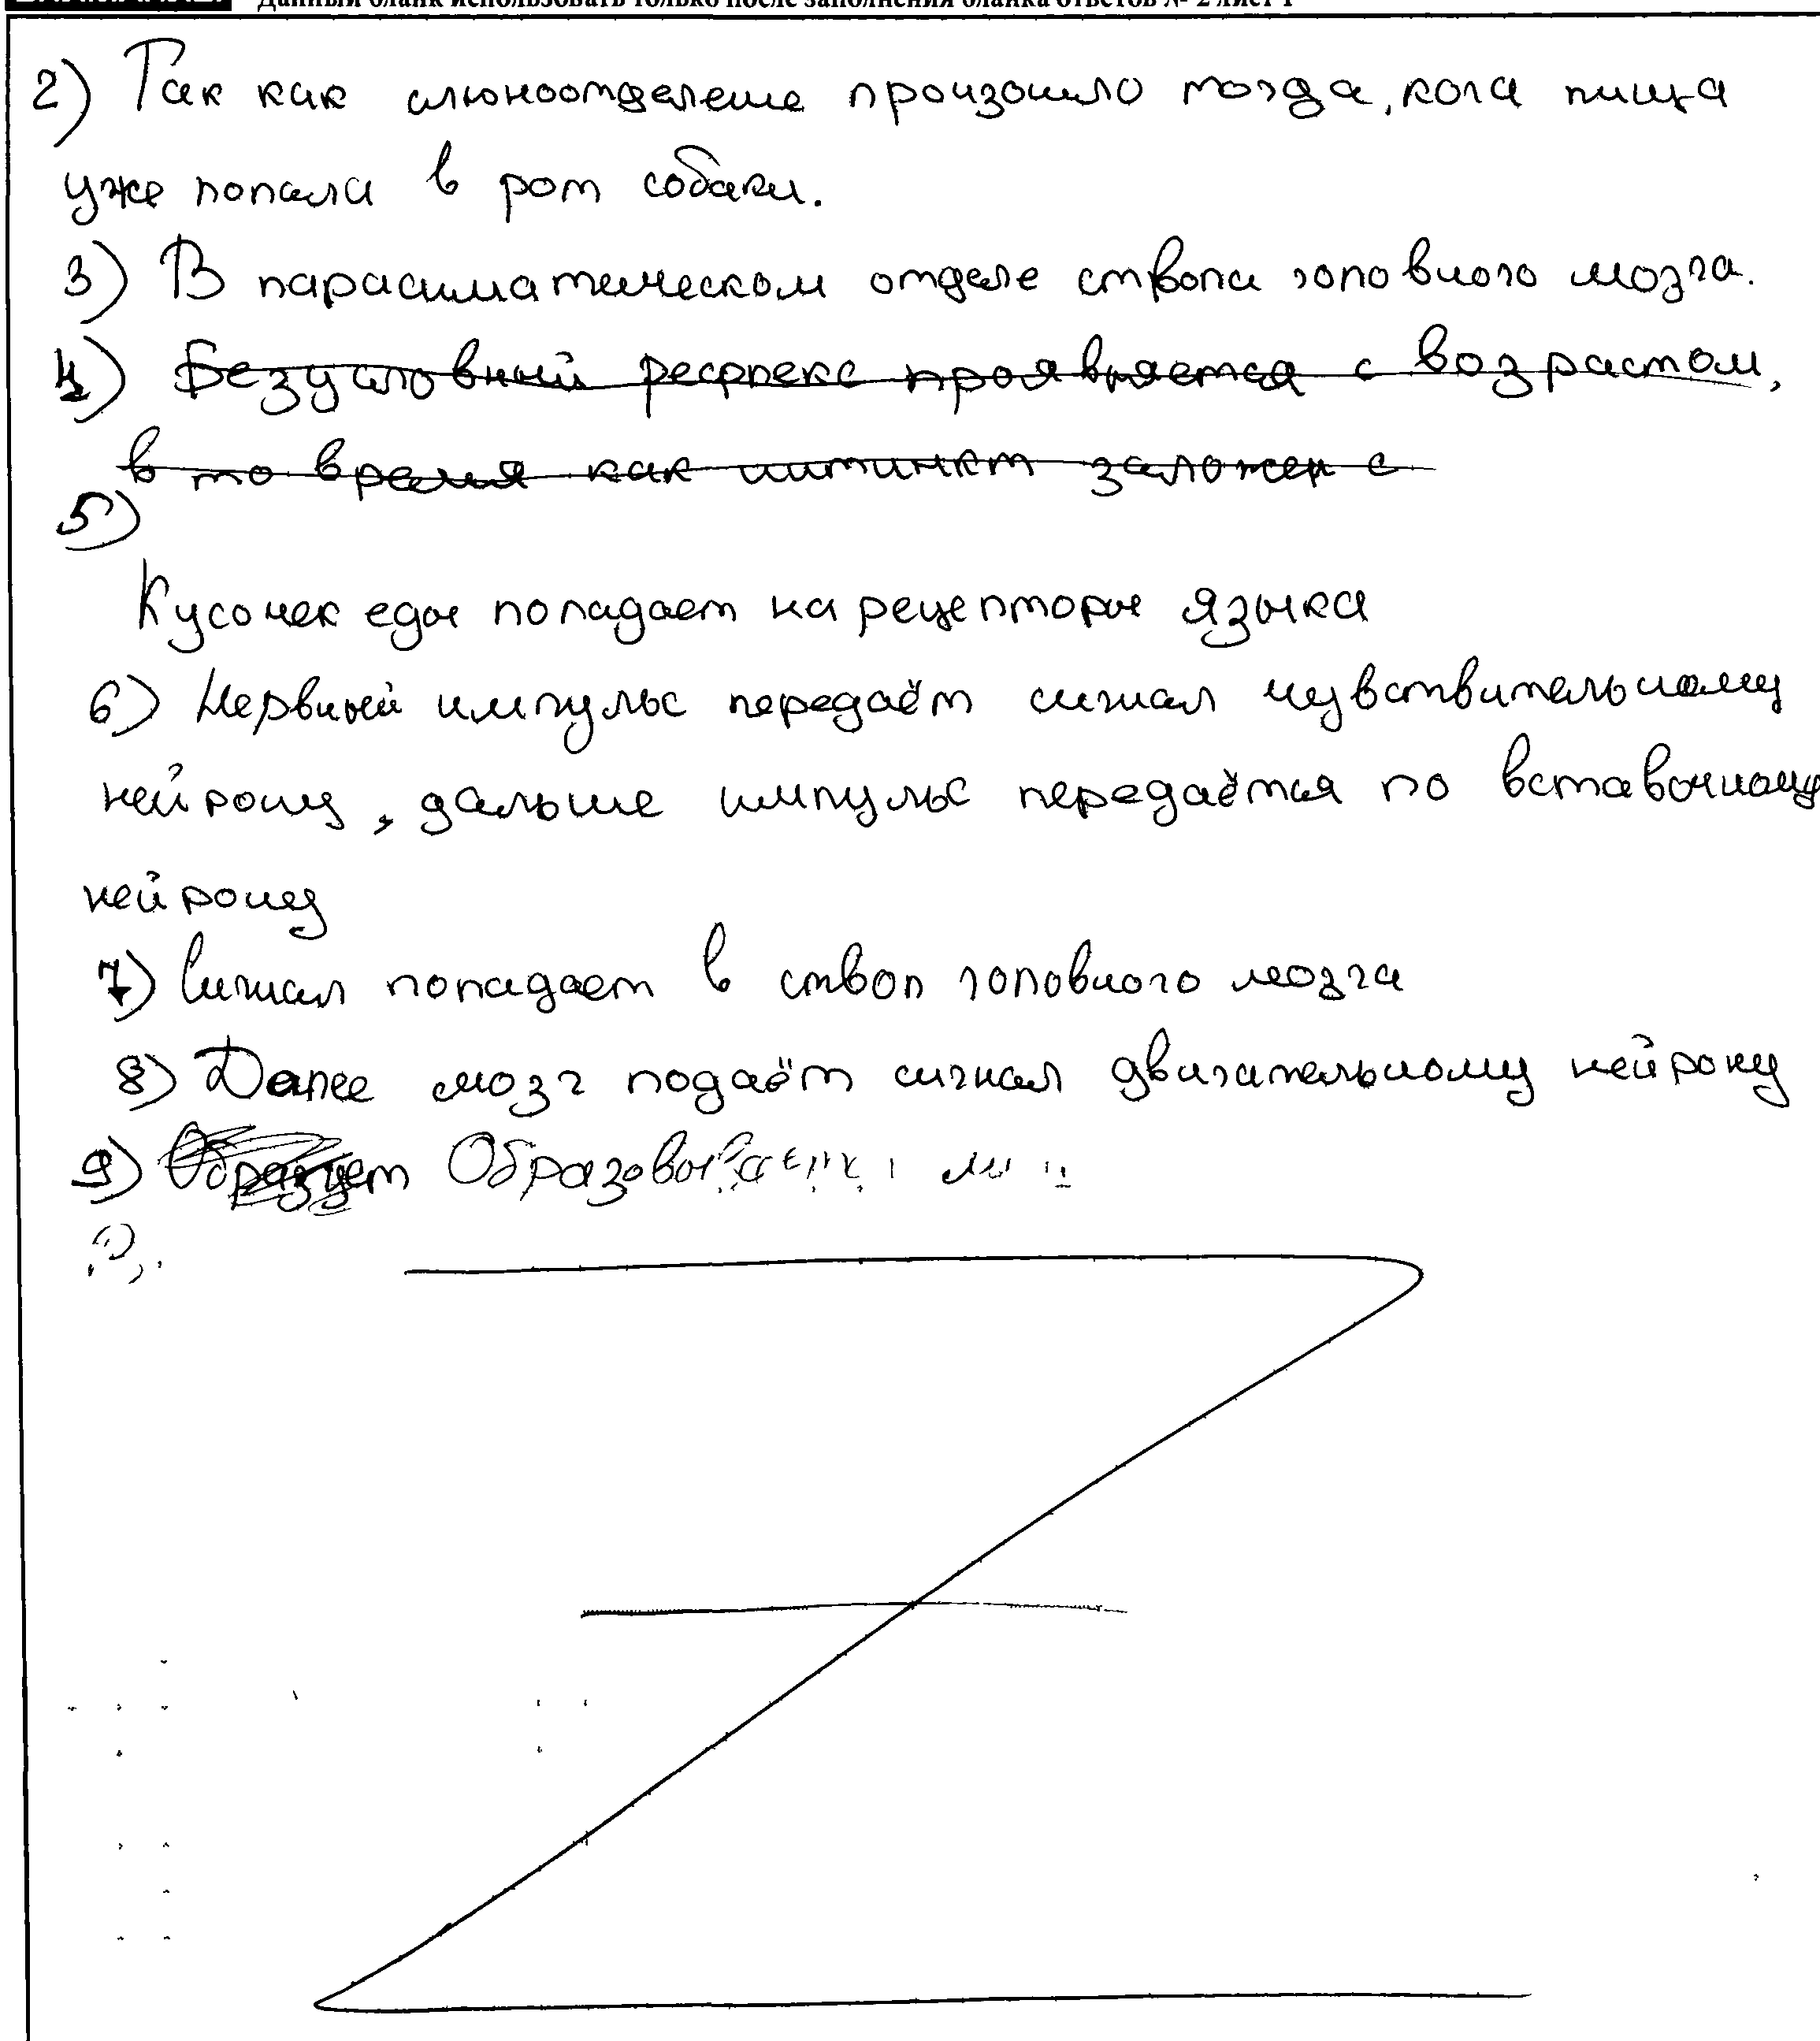 Данный бланк использовать только после заполнения бланка ответов № 2 лист 1
2) Так как слюноотделение произошло тогда, кога пища
уже попала в рот собаки.
3) В парасиматическом отделе ствола головного мозга.
4) Безусловный рефлекс проявляется с возрастом,
в то время как интинкт заложен с
5)
Кусочек еды попадает на рецепторы языка
6) Нервный импульс передаёт сигнал чувствительному
нейрону, дальше импульс передаётся по вставочному
нейрону
7) Сигнал попадает в ствол головного мозга
8) Далее мозг подаёт сигнал двигательному нейрону
9) Образует